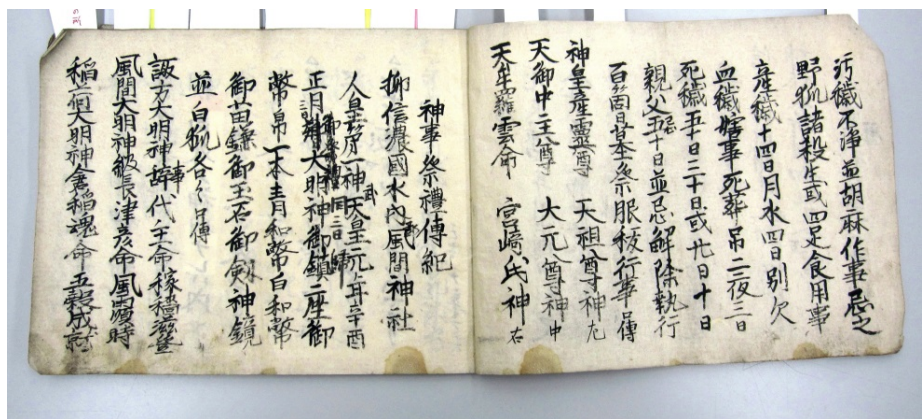 汚穢不浄並胡麻作事忌之
野狐諸殺生或四足食用事
産穢十四日月水四日別欠
血穢嫁事死葬吊二夜三日
死穢五十日三十日或九日十日
親父五十日並忌解除執行
百箇日墓祭服秡行事傳
神皇産靈尊 天祖尊神左
天御中主尊 大元尊神中
天牟羅雲命 宮崎氏神右
神事祭禮傳紀
抑信濃國水内風間神社
人皇第一神武天皇元年辛酉
正月大明神御鎮二座御
幣帛一本青和幣白和幣
御苗鎌御玉石御剱神鏡
並白狐各々傳
諏方大明神事代主命稼穡滋豊
風間大明神級長津彦命風雨時
稲荷大明神倉稲魂命五穀成就